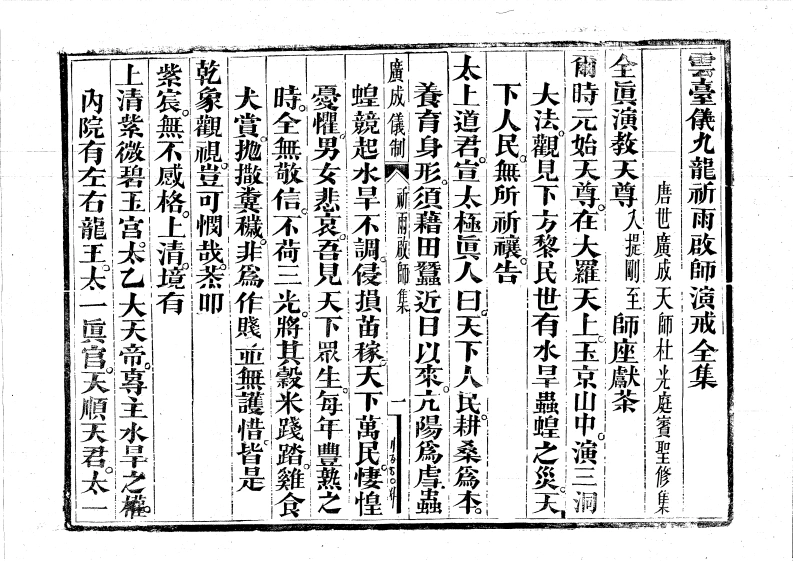 雲臺儀九龍祈雨啟師演戒全集
唐世廣成天師杜光庭賓聖修集
全眞演教天尊入提剛至師座獻茶
爾時元始天尊。在大羅天上。玉京山中。演三洞
大法。觀見下方黎民世有水旱蟲蝗之災。天
下人民。無所祈禳。告
太上道君。宣太極眞人曰。天下人民。耕桑爲本。
養育身形。須藉田蠶。近日以來。亢陽爲虐。蟲
廣成儀制 祈雨啟師集 一
蝗競起。水旱不調。侵損苗稼。天下萬民。悽惶
憂懼。男女悲哀。吾見天下眾生。每年豐熟之
時。全無敬信。不荷三光。將其穀米踐踏。雞食
犬賞。拋撒糞穢。非爲作賤。並無護惜。皆是
乾象觀視。豈可憫哉。恭叩
紫宸。無不感格。上清境有
上清紫微碧玉宮。太乙大天帝。尊主水旱之權。
內院有左右龍王。太一眞官。大順天君。太一